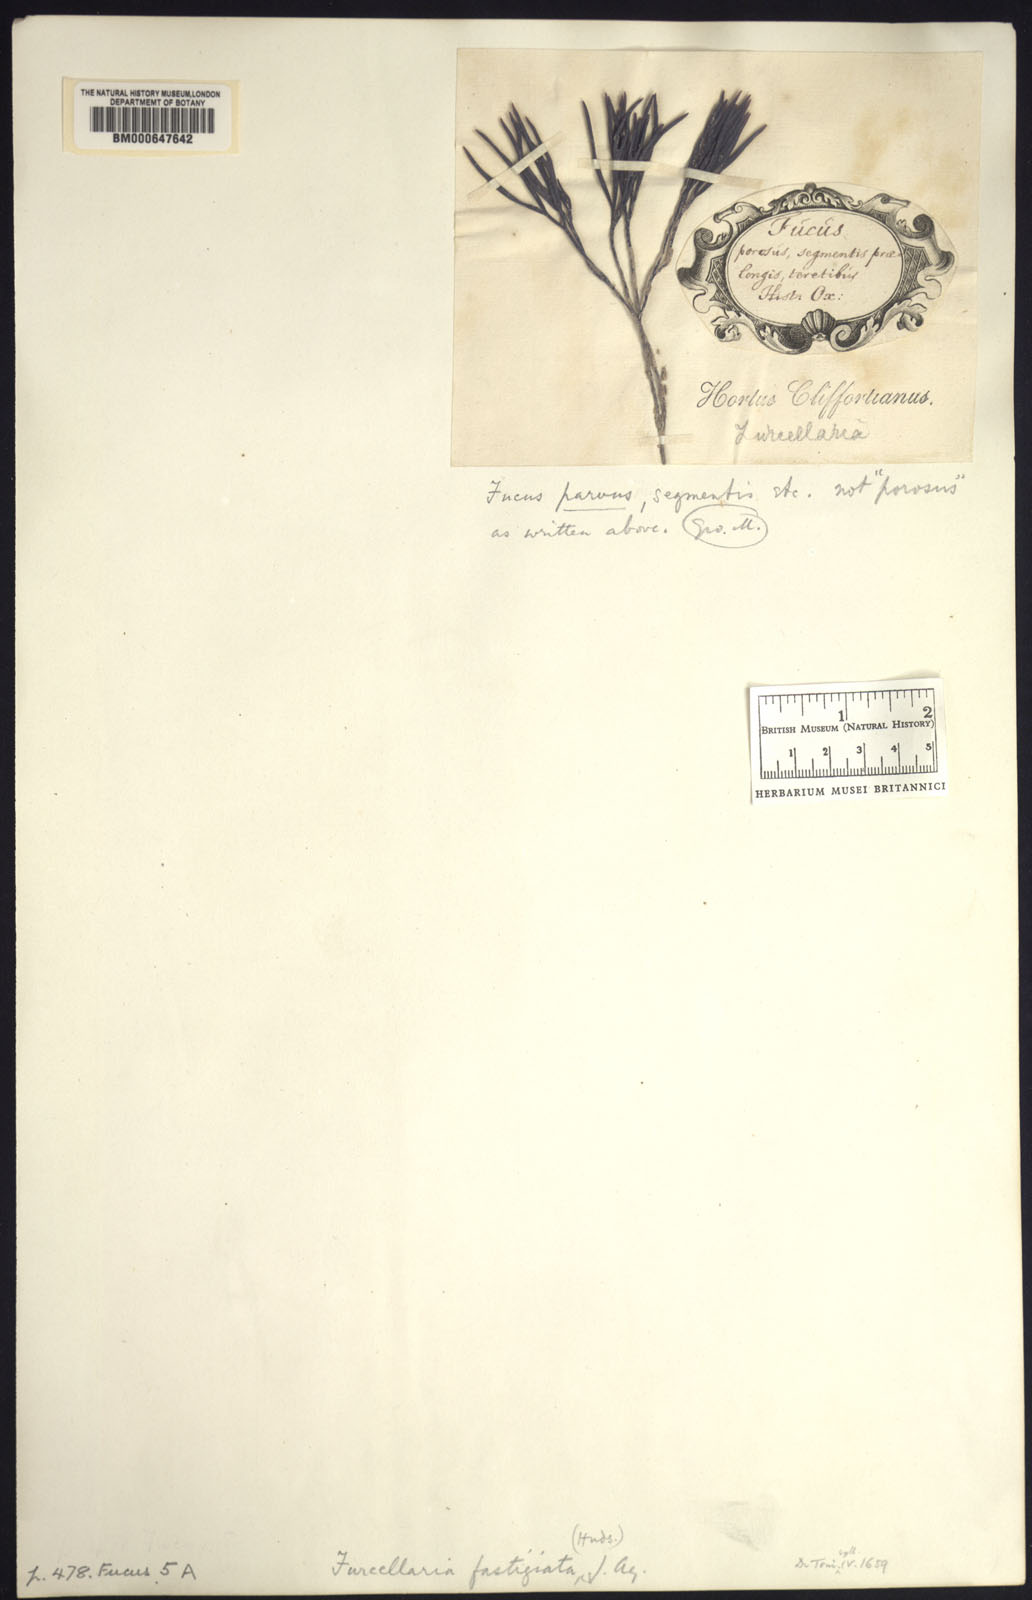 THE NATURAL HISTORY MUSEUM, LONDON
DEPARTMENT OF BOTANY
BM000647642
Fucus
porosus, segmentis præ-
longis, teretibus
Hist. Ox:
Hortus Cliffortianus.
Furcellaria
Fucus parvus, segmentis etc. not "porosus"
as written above. Geo. M.
1 2
BRITISH MUSEUM (NATURAL HISTORY)
1 2 3 4 5
HERBARIUM MUSEI BRITANNICI
p. 478. Fucus 5 A
Furcellaria fastigiata (Huds.) J. Ag.
De Toni, syll. IV. 1659